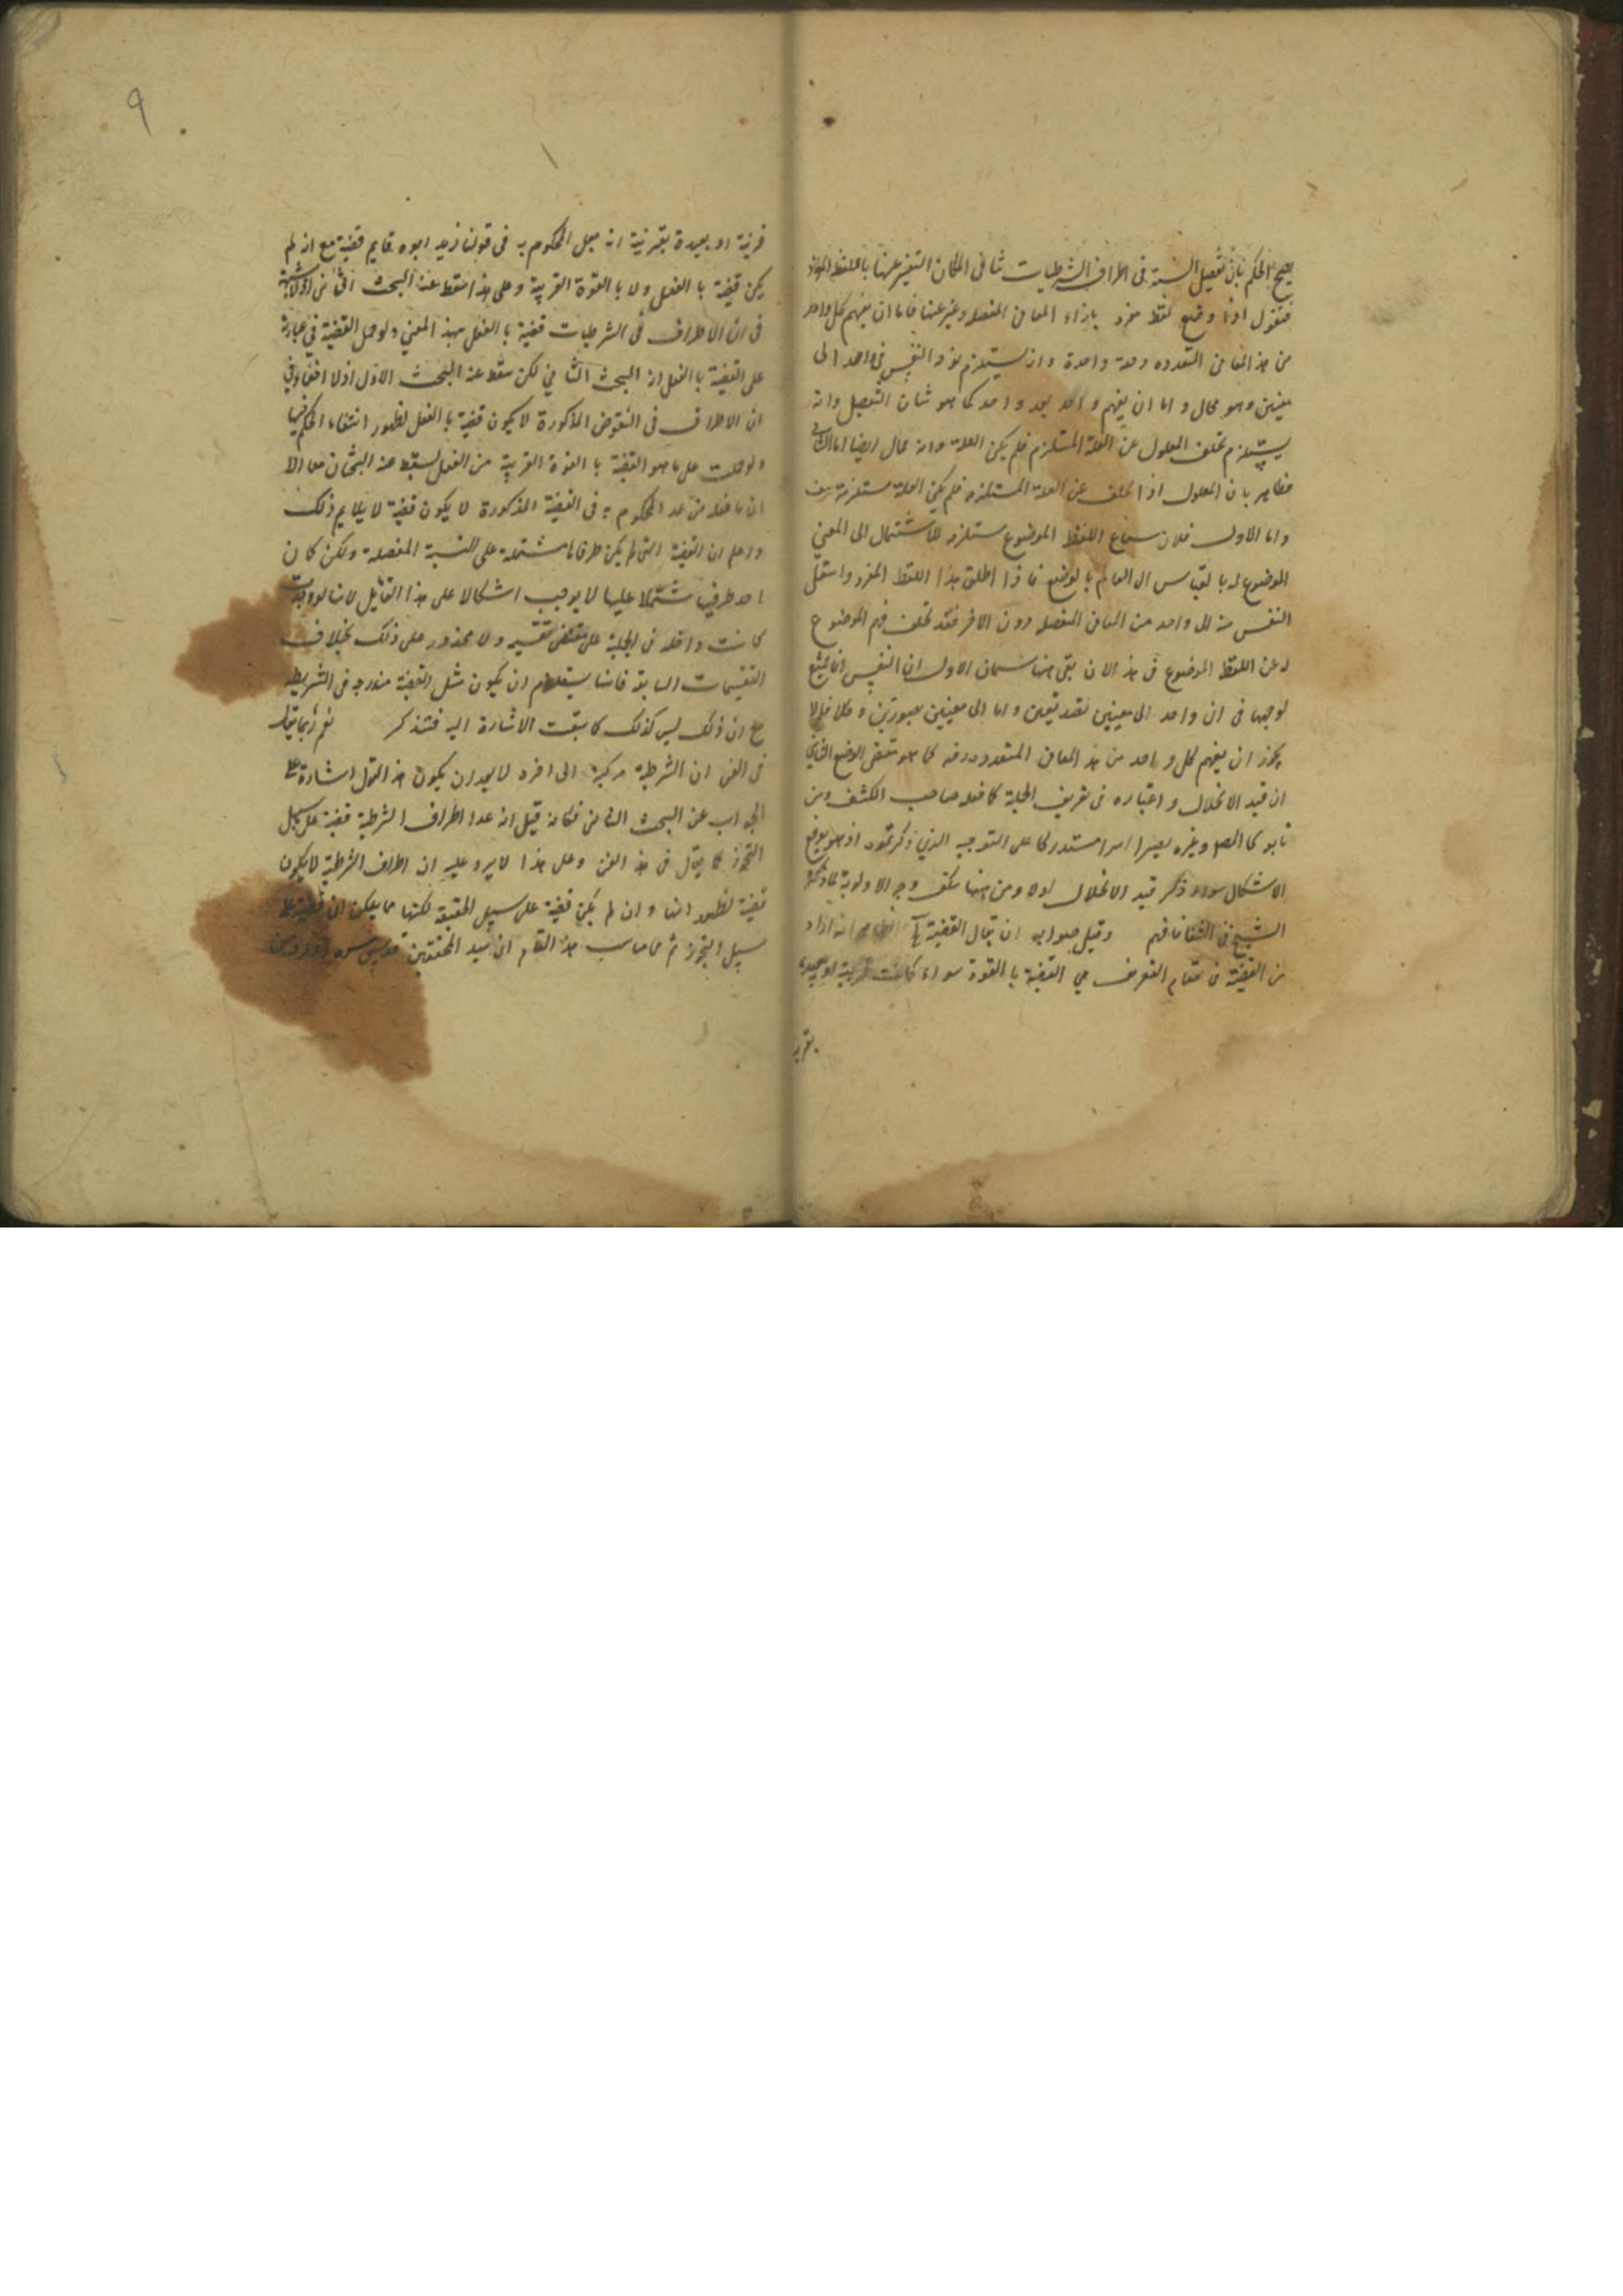 يصح الحكم بان تفصيل النسبة في اطراف الشرطيات ينافي امكان التعبير عنها باللفظ المفرد
فنقول اذا وضع لفظ مفرد بازاء المعاني المفصله وعبر عنها فاما ان يفهم كل واحد
من هذه المعاني المتعدده دفعة واحدة وانه يستلزم توجه النفس في آن واحد الى
معنيين وهو محال واما ان يفهم واحد بعد واحد كما هو شان التفصيل وانه
يستلزم تخلف المعلول عن العلة المستلزم فلم يكن العلة وانه محال ايضا اما الثاني
فظاهر بان المعلول اذا تخلف عن العلة المستلزمة فلم يكن العلة مستلزمة هف
واما الاول فلان سماع اللفظ الموضوع مستلزم للانتقال الى المعنى
الموضوع له بالقياس الى العالم بالوضع فاذا اطلق هذا اللفظ المفرد وانتقل
النفس منه الى واحد من المعاني المفصله دون الاخر فقد تخلف فهم الموضوع
له عن اللفظ الموضوع في هذا الان بقي ههنا شيئان الاول ان النفس انما يمتنع
توجهها في ان واحد الى معنيين تصديقيين واما الى معنيين تصوريين وكلا فلم لا
يجوز ان يفهم كل واحد من هذه المعاني المتعدده دفعه كما هو مقتضى الوضع الثاني
ان قيد الانحلال واعتباره في تعريف الحملية كما فعله صاحب الكشف ومن
تابعه كالمصـ وغيره يصير امرا مستدركا على التوجيه الذي ذكرتموه اذ هو يدفع
الاشكال سواء ذكر قيد الانحلال اولا ومن ههنا ينكشف وجه الاولوية لما ذكره
الشيخ في الشفا فافهم وقيل صوابه ان يقال القضية الظاهر انه اراد
من القضية في مقام التعريف هي القضية بالقوة سواء كانت قريبة او بعيدة
بقرينة
٩
قريبة او بعيدة بقرينة انه جعل المحكوم به في قولنا زيد ابوه قايم قضية مع انه لم
يكن قضية بالفعل ولا بالقوة القريبة وعلى هذا سقط عنه البحث الثاني اذ لا شبهة
في ان الاطراف في الشرطيات قضية بالفعل بهذا المعنى ولو حمل القضية في عبارة
على القضية بالفعل ان البحث الثاني لكن سقط عنه البحث الاول اذ لا خفاء في
ان الاطراف في النقوض المذكورة لا يكون قضية بالفعل لظهور انتفاء الحكم فيها
ولو حملت على ما هو القضية بالقوة القريبة من الفعل لسقط عنه البحثان معا الا
ان ما فعله من عد المحكوم به في القضية المذكورة لا يكون قضية لا يلايم ذلك
واعلم ان القضية التي لم يكن طرفاها مشتملة على النسبة المفصلة ولكن كان
احد طرفيها مشتملا عليها لا يوجب اشكالا على هذا القائل لانها لو وجدت
كانت داخله في الحملية على مقتضى تقسيمه ولا محذور على ذلك بخلاف
التقسيمات السابقة فانها يستلزم ان يكون مثل القضية مندرجه في الشرطية
مع ان ذلك ليس كذلك كما سبقت الاشارة اليه فتذكر نعم ربما يقال
في الفن ان الشرطية مركبة الى اخره لا يبعد ان يكون هذا القول اشارة على
الجواب عن البحث الثاني فكانه قيل انه عد اطراف الشرطية قضية على سبيل
التجوز كما يقال في هذا الفن وعلى هذا لا يرد عليه ان اطراف الشرطية لا يكون
قضية لظهور انها وان لم يكن قضية على سبيل الحقيقة لكنها مما يمكن ان قضية على
سبيل التجوز ثم مما يناسب هذا المقام ان سيد المحققين قدس سره اورد من